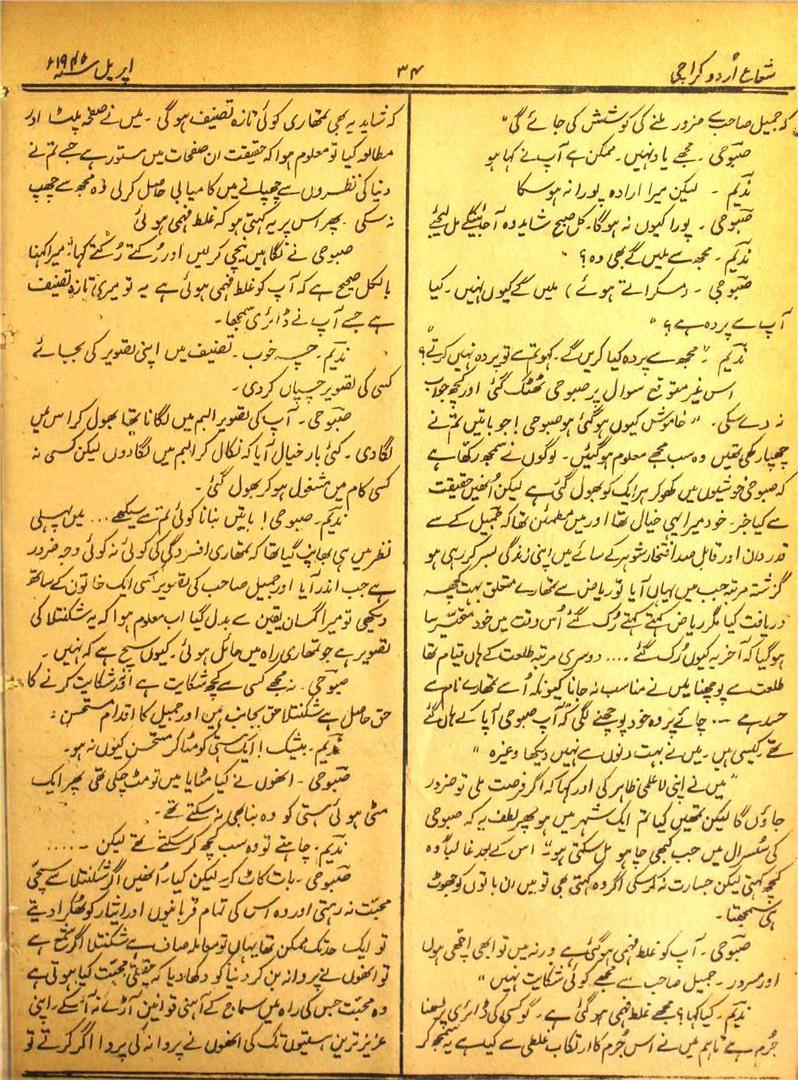 شعاع اُردو کراچی
۳۴
اپریل
کہ جمیل صاحب سے ضرور ملنے کی کوشش کی جائے گی"
صبوحی ۔ مجھے یاد نہیں۔ ممکن ہے آپ نے کہا ہو
ندیم ۔ لیکن میرا ارادہ پورا نہ ہوسکا
صبوحی ۔ پورا کیوں نہ ہوگا۔ کل صبح شاید وہ آجائینگے مل لیجئے
ندیم ۔ مجھ سے ملیں گے بھی وہ؟"
صبوحی ۔ (مسکراتے ہوئے) ملیں گے کیوں نہیں۔ کیا
آپ سے پردہ ہے؟"
ندیم ۔" مجھ سے پردہ کیا کریں گے۔ کہو تم سے تو پردہ نہیں کرتے؟"
اس غیر متوقع سوال پر صبوحی ٹھٹک گئی اور کچھ جواب
نہ دے سکی۔ "خاموش کیوں ہوگئی ہو صبوحی! جو باتیں تم نے
چھپا رکھی تھیں وہ سب مجھے معلوم ہوگئیں۔ لوگوں نے سمجھ رکھا ہے
کہ صبوحی خوشیوں میں کھو کر ہر ایک کو بھول گئی ہے لیکن اُنھیں حقیقت
سے کیا خبر۔ خود میرا یہی خیال تھا اور میں مطمئن تھا کہ تم جمیل کے سے
قدردان اور قابل صد افتخار شوہر کے سائے میں اپنی زندگی بسر کر رہی ہو
گزشتہ مرتبہ جب میں یہاں آیا تو ریاض سے تمھارے متعلق بہت کچھ
دریافت کیا مگر ریاض کہتے کہتے رُک گئے اُس وقت میں خود متحیر سا
ہوگیا کہ آخر یہ کیوں رُک گئے .... دوسری مرتبہ طلعت کے ہاں قیام تھا
طلعت سے پوچھنا میں نے مناسب نہ جانا کیونکہ اُسے تمھارے نام سے
حسد ہے ۔۔۔ چائے پر وہ خود پوچھنے لگی کہ "آپ صبوحی آپا کے ہاں گئے
تھے۔ کیسی ہیں۔ میں نے بہت دنوں سے نہیں دیکھا وغیرہ"
"میں نے اپنی لاعلمی ظاہر کی اور کہا کہ اگر فرصت ملی تو ضرور
جاؤں گا لیکن تمھیں کیا تم ایک شہر میں ہو پھر لطف یہ کہ صبوحی
کی سُسرال میں جب کبھی چاہو مل سکتی ہو"۔ اس کے بعد غالباً وہ
کچھ کہتی لیکن جسارت نہ کر سکی اگر وہ کہتی بھی تو میں ان باتوں کو جھوٹ
ہی سمجھتا۔
صبوحی ۔ آپ کو غلط فہمی ہوگئی ہے ورنہ میں تو ابھی اچھی ہوں
اور مسرور ۔ جمیل صاحب سے مجھے کوئی شکایت نہیں"
ندیم ۔ کیا کہا؟ مجھے غلط فہمی ہوگئی ہے۔ گو کسی کی ڈائری پڑھنا
جُرم ہے تاہم میں نے اس جُرم کا ارتکاب غلطی سے کیا ہے یہ سمجھ کر
کہ شاید یہ بھی تمھاری کوئی تازہ تصنیف ہوگی ۔ میں نے صفحہ پلٹا اور
مطالعہ کیا تو معلوم ہوا کہ حقیقت ان صفحات میں مستور ہے جسے تم نے
دنیا کی نظروں سے چھپانے میں کامیابی حاصل کرلی وہ مجھ سے چھپ
نہ سکی ۔ پھر اس پر یہ کہتی ہو کہ غلط فہمی ہوئی
صبوحی نے نگاہیں نیچی کرلیں اور رُکتے رُکتے کہا "میرا کہنا
بالکل صحیح ہے کہ آپ کو غلط فہمی ہوئی ہے یہ تو میری تازہ تصنیف
ہے جسے آپ نے ڈائری سمجھا۔
ندیم ۔ چہ خوب ۔ تصنیف میں اپنی تصویر کی بجائے
کسی کی تصویر چسپاں کردی ۔
صبوحی ۔ آپ کی تصویر البم میں لگانا تھا بھول کر اس میں
لگا دی ۔ کئی بار خیال آیا کہ نکال کر البم میں لگادوں لیکن کسی نہ
کسی کام میں مشغول ہو کر بھول گئی ۔
ندیم ۔ صبوحی! باتیں بنانا کوئی تم سے سیکھے ... میں پہلی
نظر میں ہی بھانپ گیا تھا کہ تمھاری افسردگی کی کوئی نہ کوئی وجہ ضرور
ہے جب اندر آیا اور جمیل صاحب کی تصویر کسی ایک خاتون کے ساتھ
دیکھی تو میرا گمان یقین سے بدل گیا اب معلوم ہوا کہ یہ شکنتلا کی
تصویر ہے جو تمھاری راہ میں حائل ہوئی ۔ کیوں سچ ہے کہ نہیں ۔
صبوحی ۔ نہ مجھے کسی سے کچھ شکایت ہے اور نہ شکایت کرنے کا
حق حاصل ہے شکنتلا حق بجانب ہیں اور جمیل کا اقدام مستحسن:
ندیم ۔ بیشک! ایک ہستی کو مٹا کر مستحسن کیوں نہ ہو۔
صبوحی ۔ انھوں نے کیا مٹایا میں تو مٹ چکی تھی پھر ایک
مٹی ہوئی ہستی کو وہ بنا بھی نہ سکتے تھے ۔
ندیم ۔ چاہتے تو وہ سب کچھ کر سکتے تھے لیکن .....
صبوحی ۔ بات کاٹ کر۔ لیکن کیا۔ اُنھیں اگر شکنتلا سے سچی
محبت نہ رہتی اور وہ اس کی تمام قربانیوں اور ایثار کو ٹھکرا دیتے
تو ایک حد تک ممکن تھا یہاں تو معاملہ صاف ہے شکنتلا اگر شمع ہے
تو انھوں نے پروانہ بن کر دنیا کو دکھا دیا کہ حقیقی محبت کیا ہوتی ہے
وہ محبت جس کی راہ میں سماج کے آہنی قوانین آڑے نہ آسکے ۔ اپنی
عزیز ترین ہستیوں تک کی انھوں نے پروا نہ کی پروا اگر کرتے تو